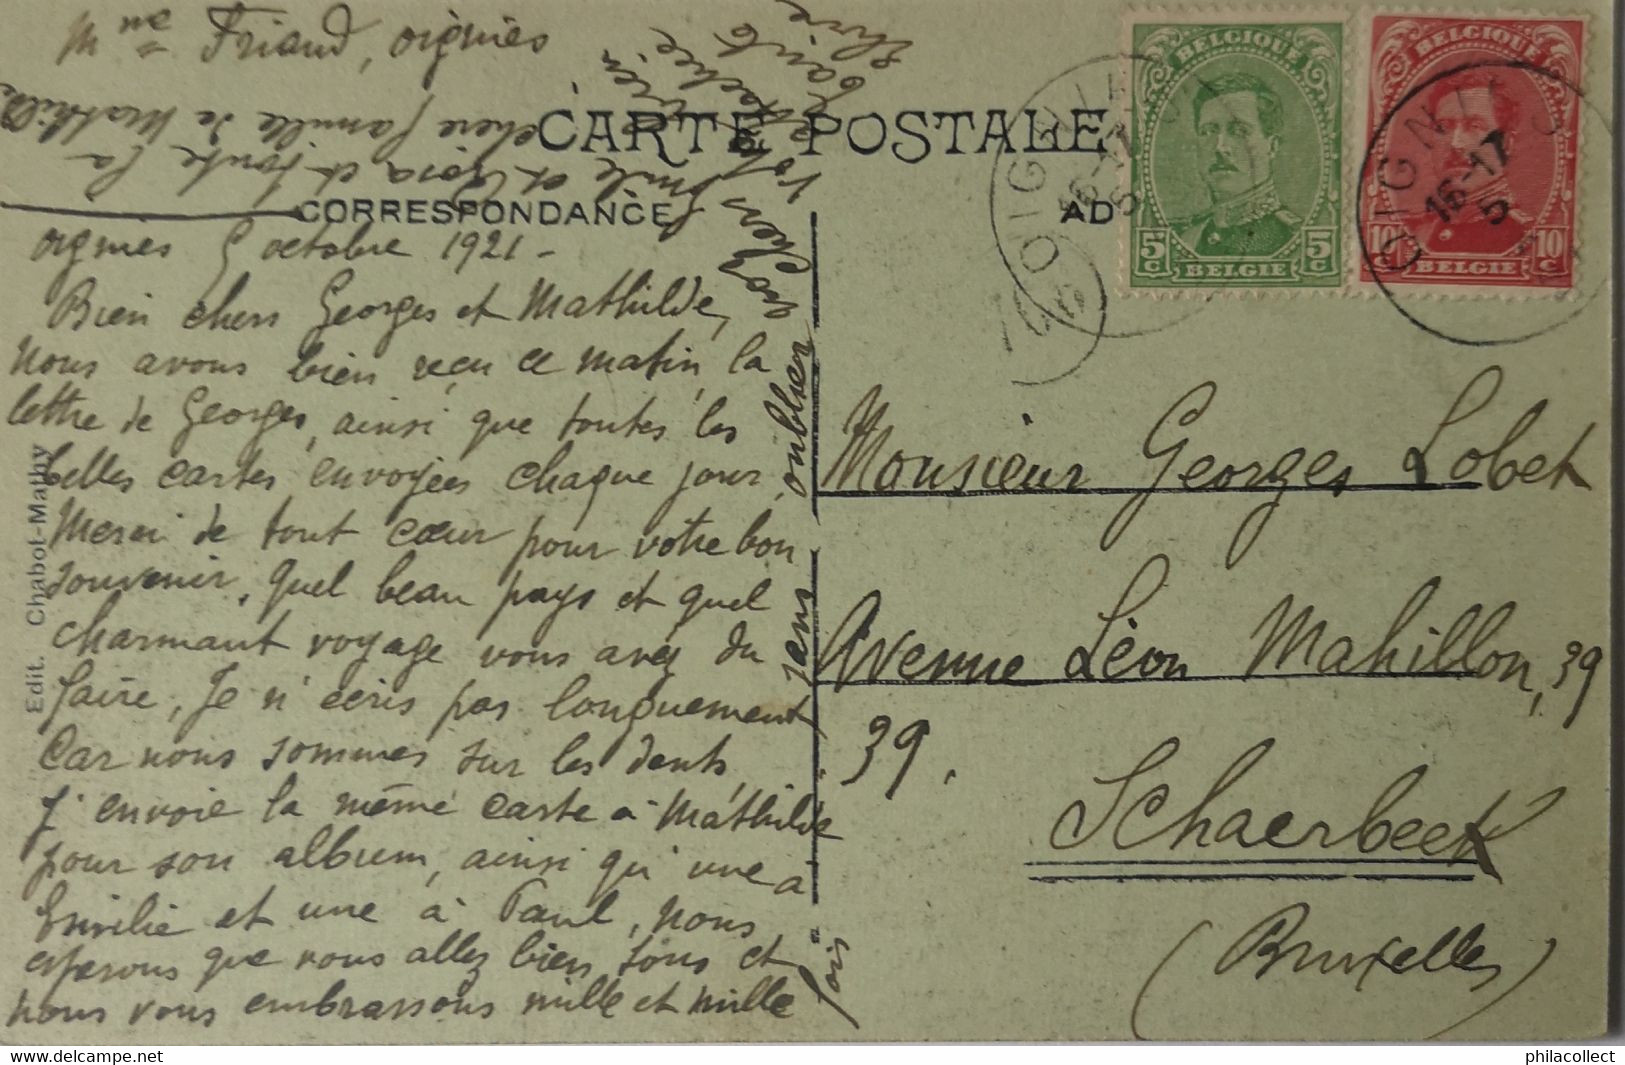 Mme Friand, oignies
CARTE POSTALE
CORRESPONDANCE
AD
BELGIQUE
5c 5c
BELGIE
BELGIQUE
10c 10c
BELGIE
OIGNIES
16-17
5
oignies 5 octobre 1921 -
Bien chers Georges et Mathilde,
Nous avons bien reçu ce matin, la
lettre de Georges, ainsi que toutes les
belles cartes envoyées chaque jour,
Merci de tout cœur pour votre bon
souvenir, quel beau pays et quel
charmant voyage vous avez du
faire, Je n'écris pas longuement
Car nous sommes sur les dents,
J'envoie la même carte à Mathilde
pour son album, ainsi qu'une à
Emilie et une à Paul, nous
esperons que vous allez bien tous et
nous vous embrassons mille et mille
fois
sans oublier
nos chers
Emile et
et toute la
chère famille de Mathilde
Monsieur Georges Lobet
Avenue Léon Mahillon, 39
39.
Schaerbeek
(Bruxelles)
Edit. Chabot-Mathy
philacollect